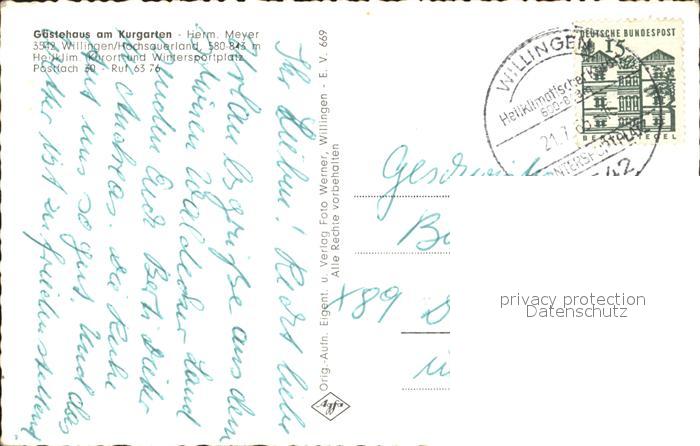 Gästehaus am Kurgarten - Herm. Meyer
3542 Willingen/Hochsauerland, 580-843 m
Heilklim. Kurort und Wintersportplatz
Postfach 30 - Ruf 63 76
Ihr Lieben! Recht liebe
Urlaubsgrüße aus dem
schönen Waldecker Land
senden Euch Berti, Dieter
u. Andreas. Die Ruhe
tut uns so gut. Und das
Wetter ist zufriedenstellend.
Orig.-Aufn. Eigent. u. Verlag Foto Werner, Willingen - E. V. 669
Alle Rechte vorbehalten
Agfa
WILLINGEN
Heilklimatischer
21.7.
WINTERSPORTPLATZ
DEUTSCHE BUNDESPOST
15
TEGEL
X89
privacy protection
Datenschutz